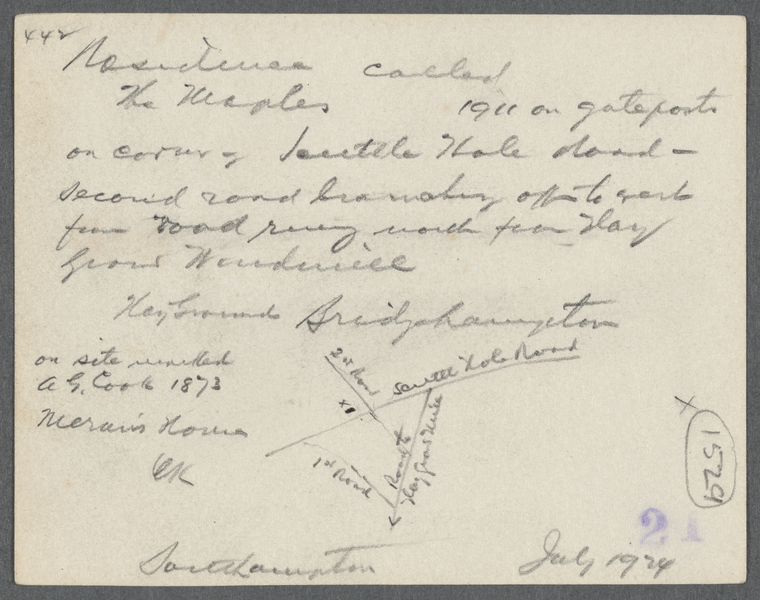 442
Residence called
The Maples 1911 on gateposts
on corner of Scuttle Hole Road -
second road branching off to west
from road runing north from Hay
Ground Windmill
Hay Grounds Bridgehampton
on site marked
A. G. Cook 1873
House
OK
2nd Road
Scuttle Hole Road
X1
1st Road
Road to
X
1529
21
Southampton July 1924